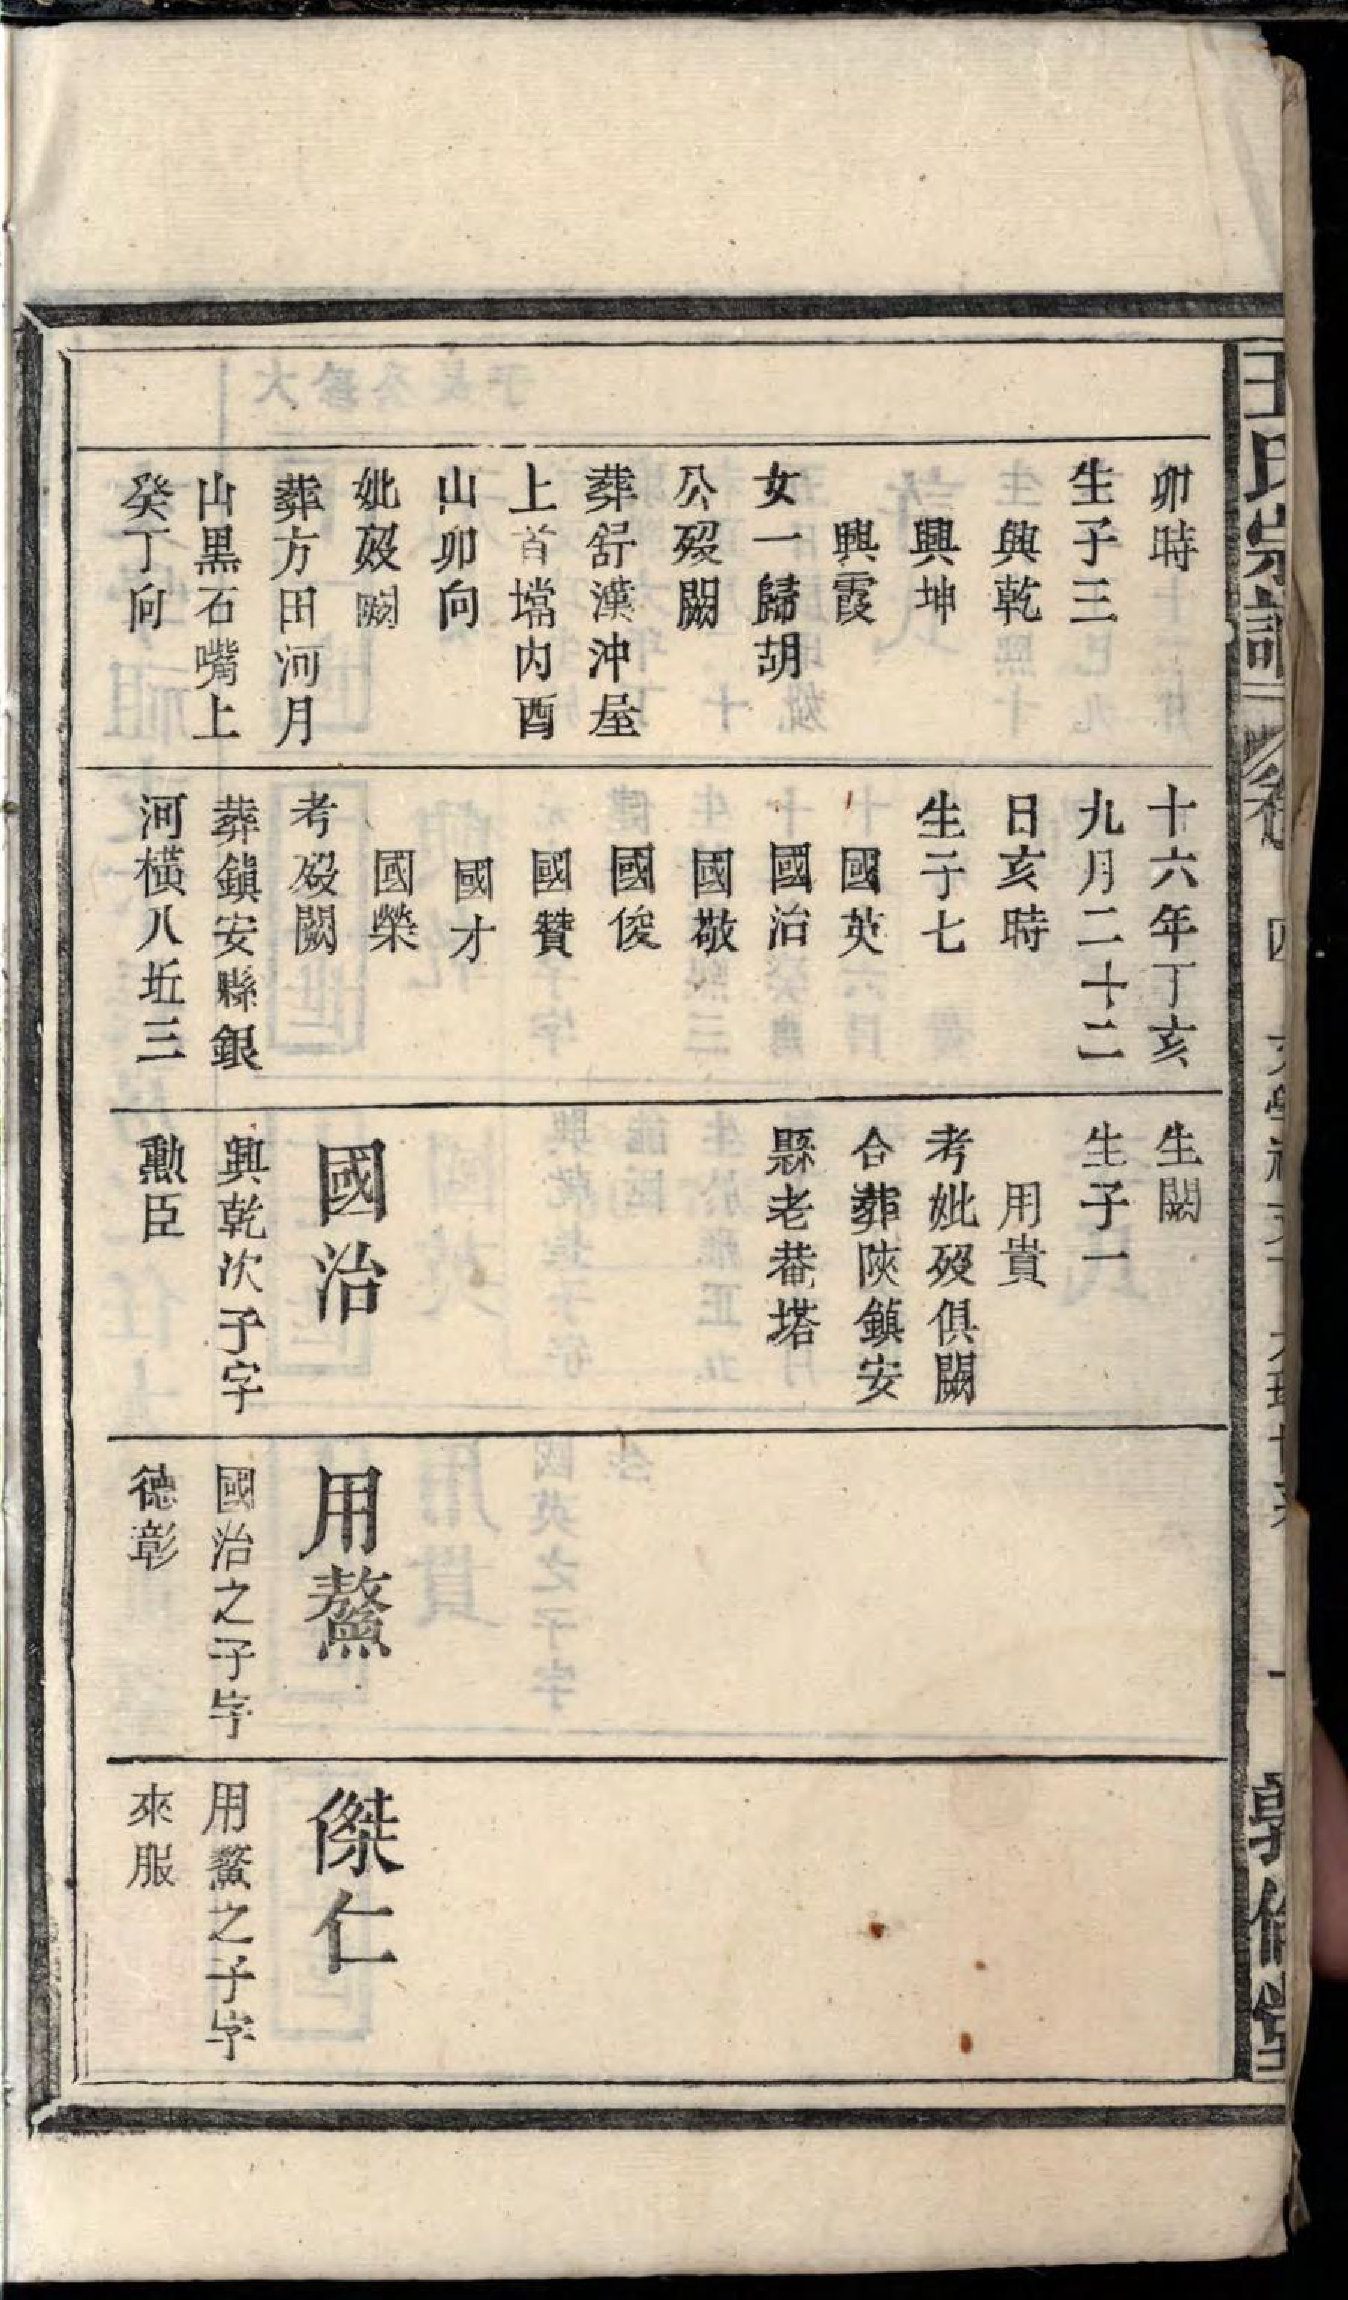 王氏宗譜
卷四
卯時
生子三
興乾
興坤
興霞
女一歸胡
公歿闕
葬舒漢沖屋
上首壋内酉
山卯向
妣歿闕
葬方田河月
山黒石嘴上
癸丁向
十六年丁亥
九月二十二
日亥時
生子七
國英
國治
國敬
國俊
國贊
國才
國榮
考歿闕
葬鎮安縣銀
河橫八坵三
生闕
生子一
用貴
考妣歿俱闕
合葬陝鎮安
縣老菴塔
國治
興乾次子字
勲臣
用鰲
國治之子字
德彰
傑仁
用鰲之子字
來服